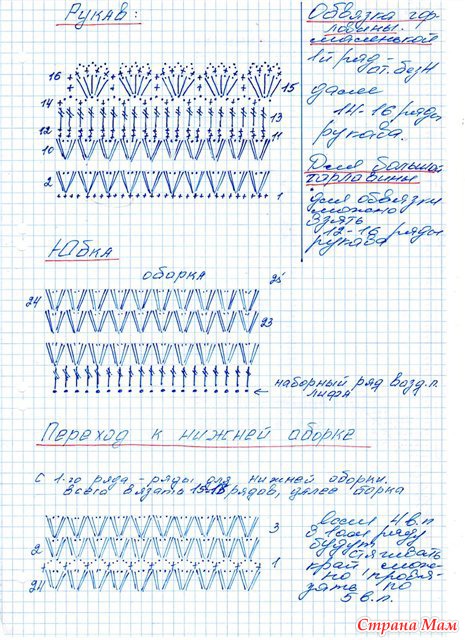 Рукав:
16
15
14
13
12
11
10
2
1
Обвязка гор-
ловины.
маленькой
1й ряд -
ст. без н
далее
14-16 ряды
рукава.
Для большой
для обвязки
можно
взять
12-16 ряды
рукава
Юбка
оборка
25
24
23
наборный ряд возд.п.
лифа
Переход к нижней оборке
с 1-го ряда - ряды для нижней оборки.
всего вязать рядов, далее
3
2
1
24
Если 4 в.п
в 1ом ряду
будут
стягивать
край мож-
но провя-
зать по
5 в.п.
Страна Мам